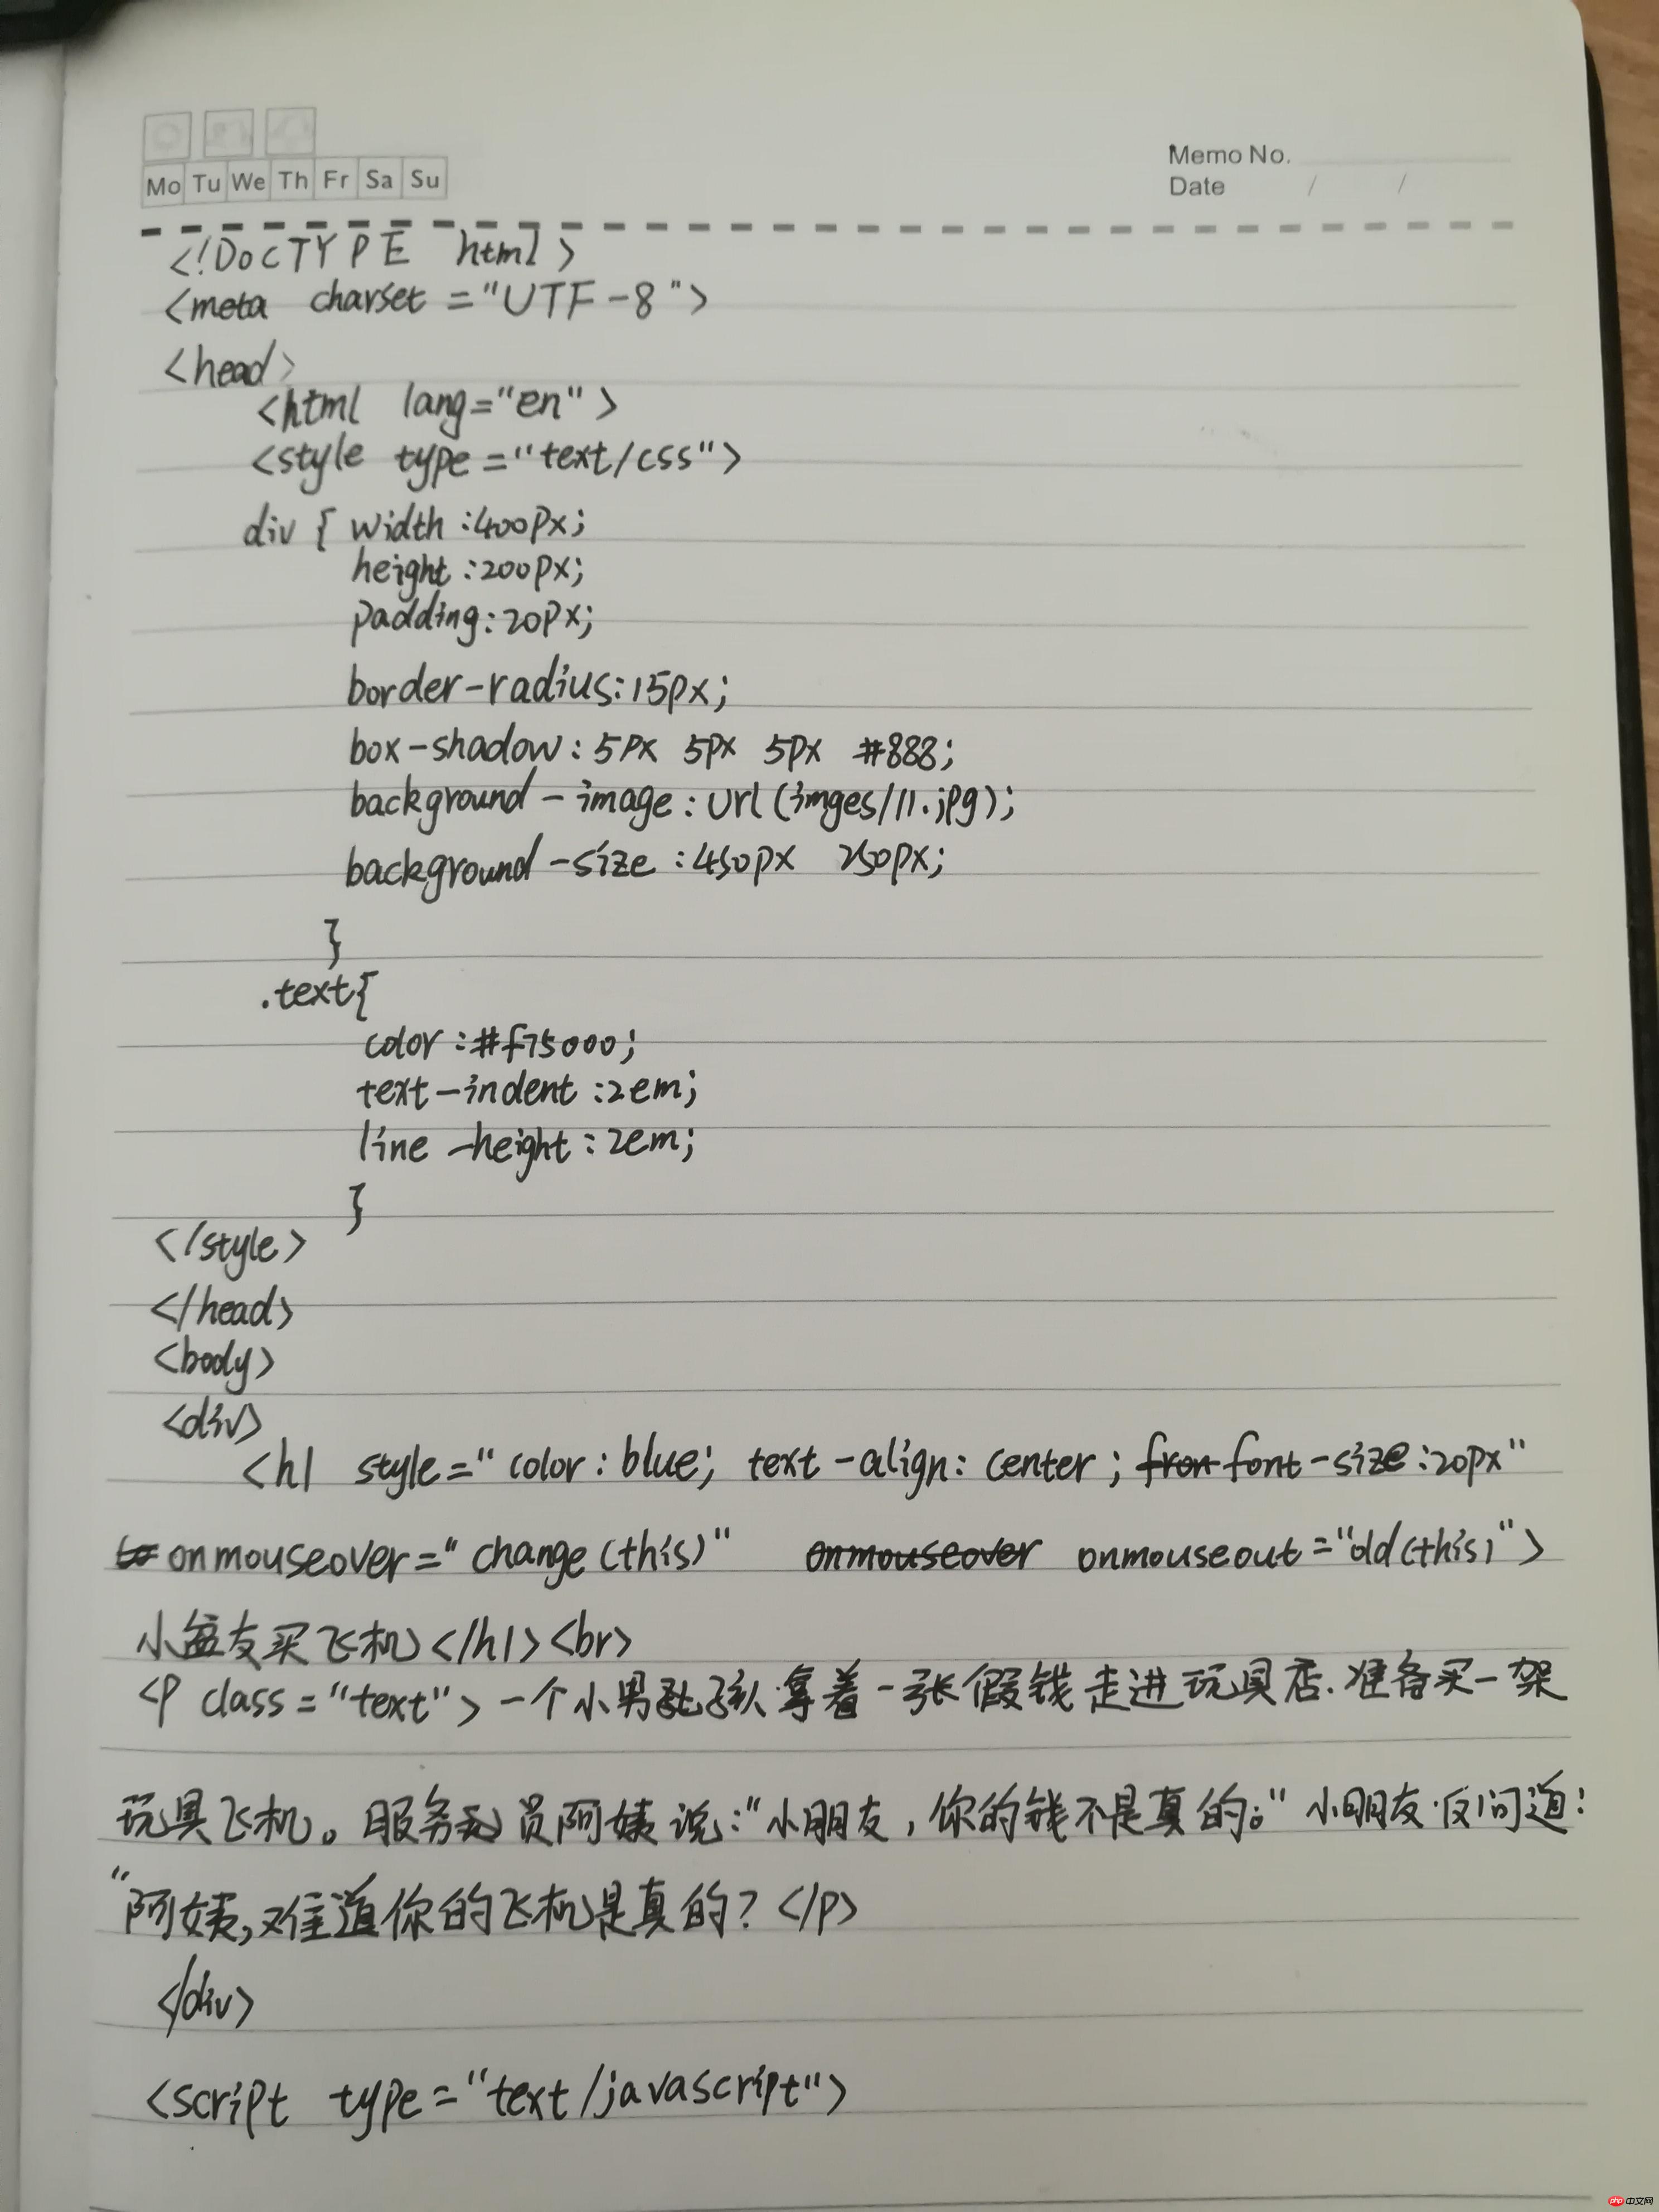 Mo Tu We Th Fr Sa Su
Memo No.
Date / /
<!DocTYPE html>
<meta charset="UTF-8">
<head>
<html lang="en">
<style type="text/css">
div { width:400px;
height:200px;
padding:20px;
border-radius:15px;
box-shadow:5px 5px 5px #888;
background-image:url(imges/11.jpg);
background-size:450px 250px;
}
.text{
color:#f75000;
text-indent:2em;
line-height:2em;
}
</style>
</head>
<body>
<div>
<h1 style="color:blue; text-align:center; font-size:20px"
onmouseover="change(this)" onmouseover onmouseout="old(this)">
小盆友买飞机</h1><br>
<p class="text">一个小男孩拿着一张假钱走进玩具店.准备买一架
玩具飞机。服务员阿姨说:"小朋友,你的钱不是真的。"小朋友反问道:
"阿姨,难道你的飞机是真的?</p>
</div>
<script type="text/javascript">
php 中文网